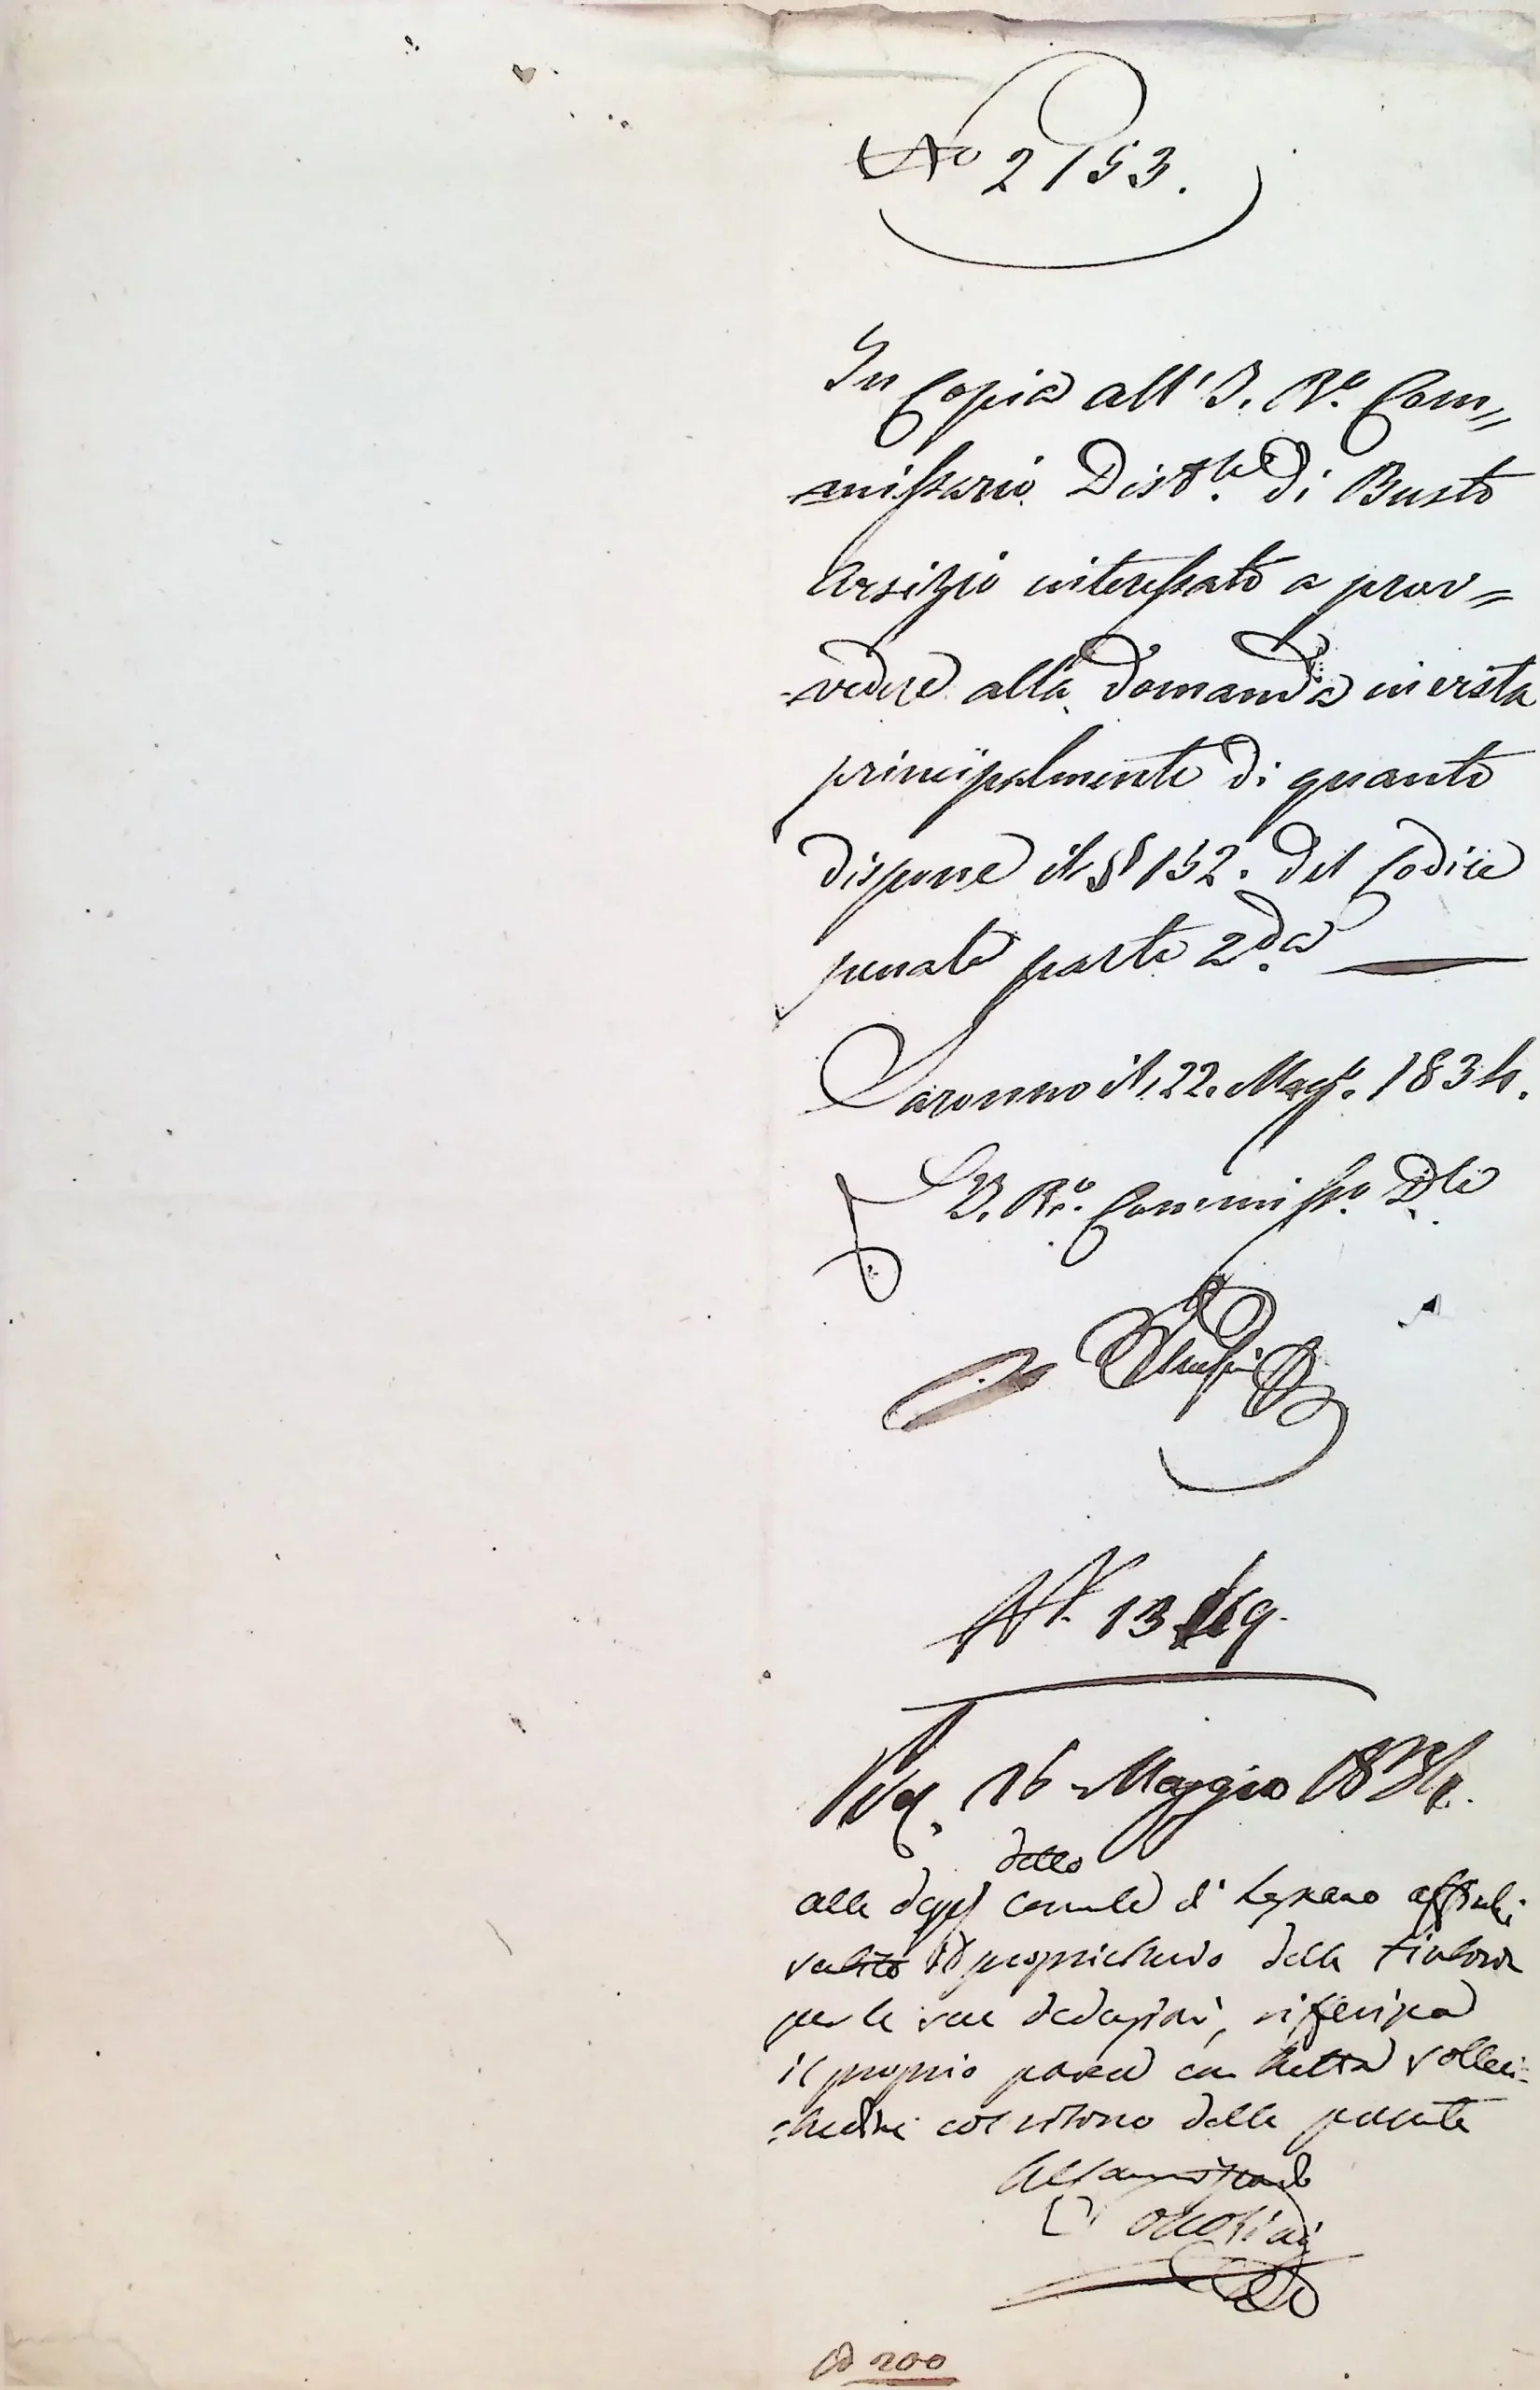 No 2153.
In Copia all' I. Ro. Com„
missario Distle. di Busto
Arsizio interessato a prov=
vedere alla domanda in vista
principalmente di quanto
dispone il § 152. del Codice
penale parte 2da.
Saronno il 22. Magg. 1834.
L'I. Ro. Commissro. Dle
N. 13
16 Maggio 1834.
detto
alla Comunale di Legnano affinchè
sentito il proprietario della tintoria
per le sue deduzioni, riferisca
il proprio parere con tutta solleci=
tudine col ritorno della presente
Il Commissario
200